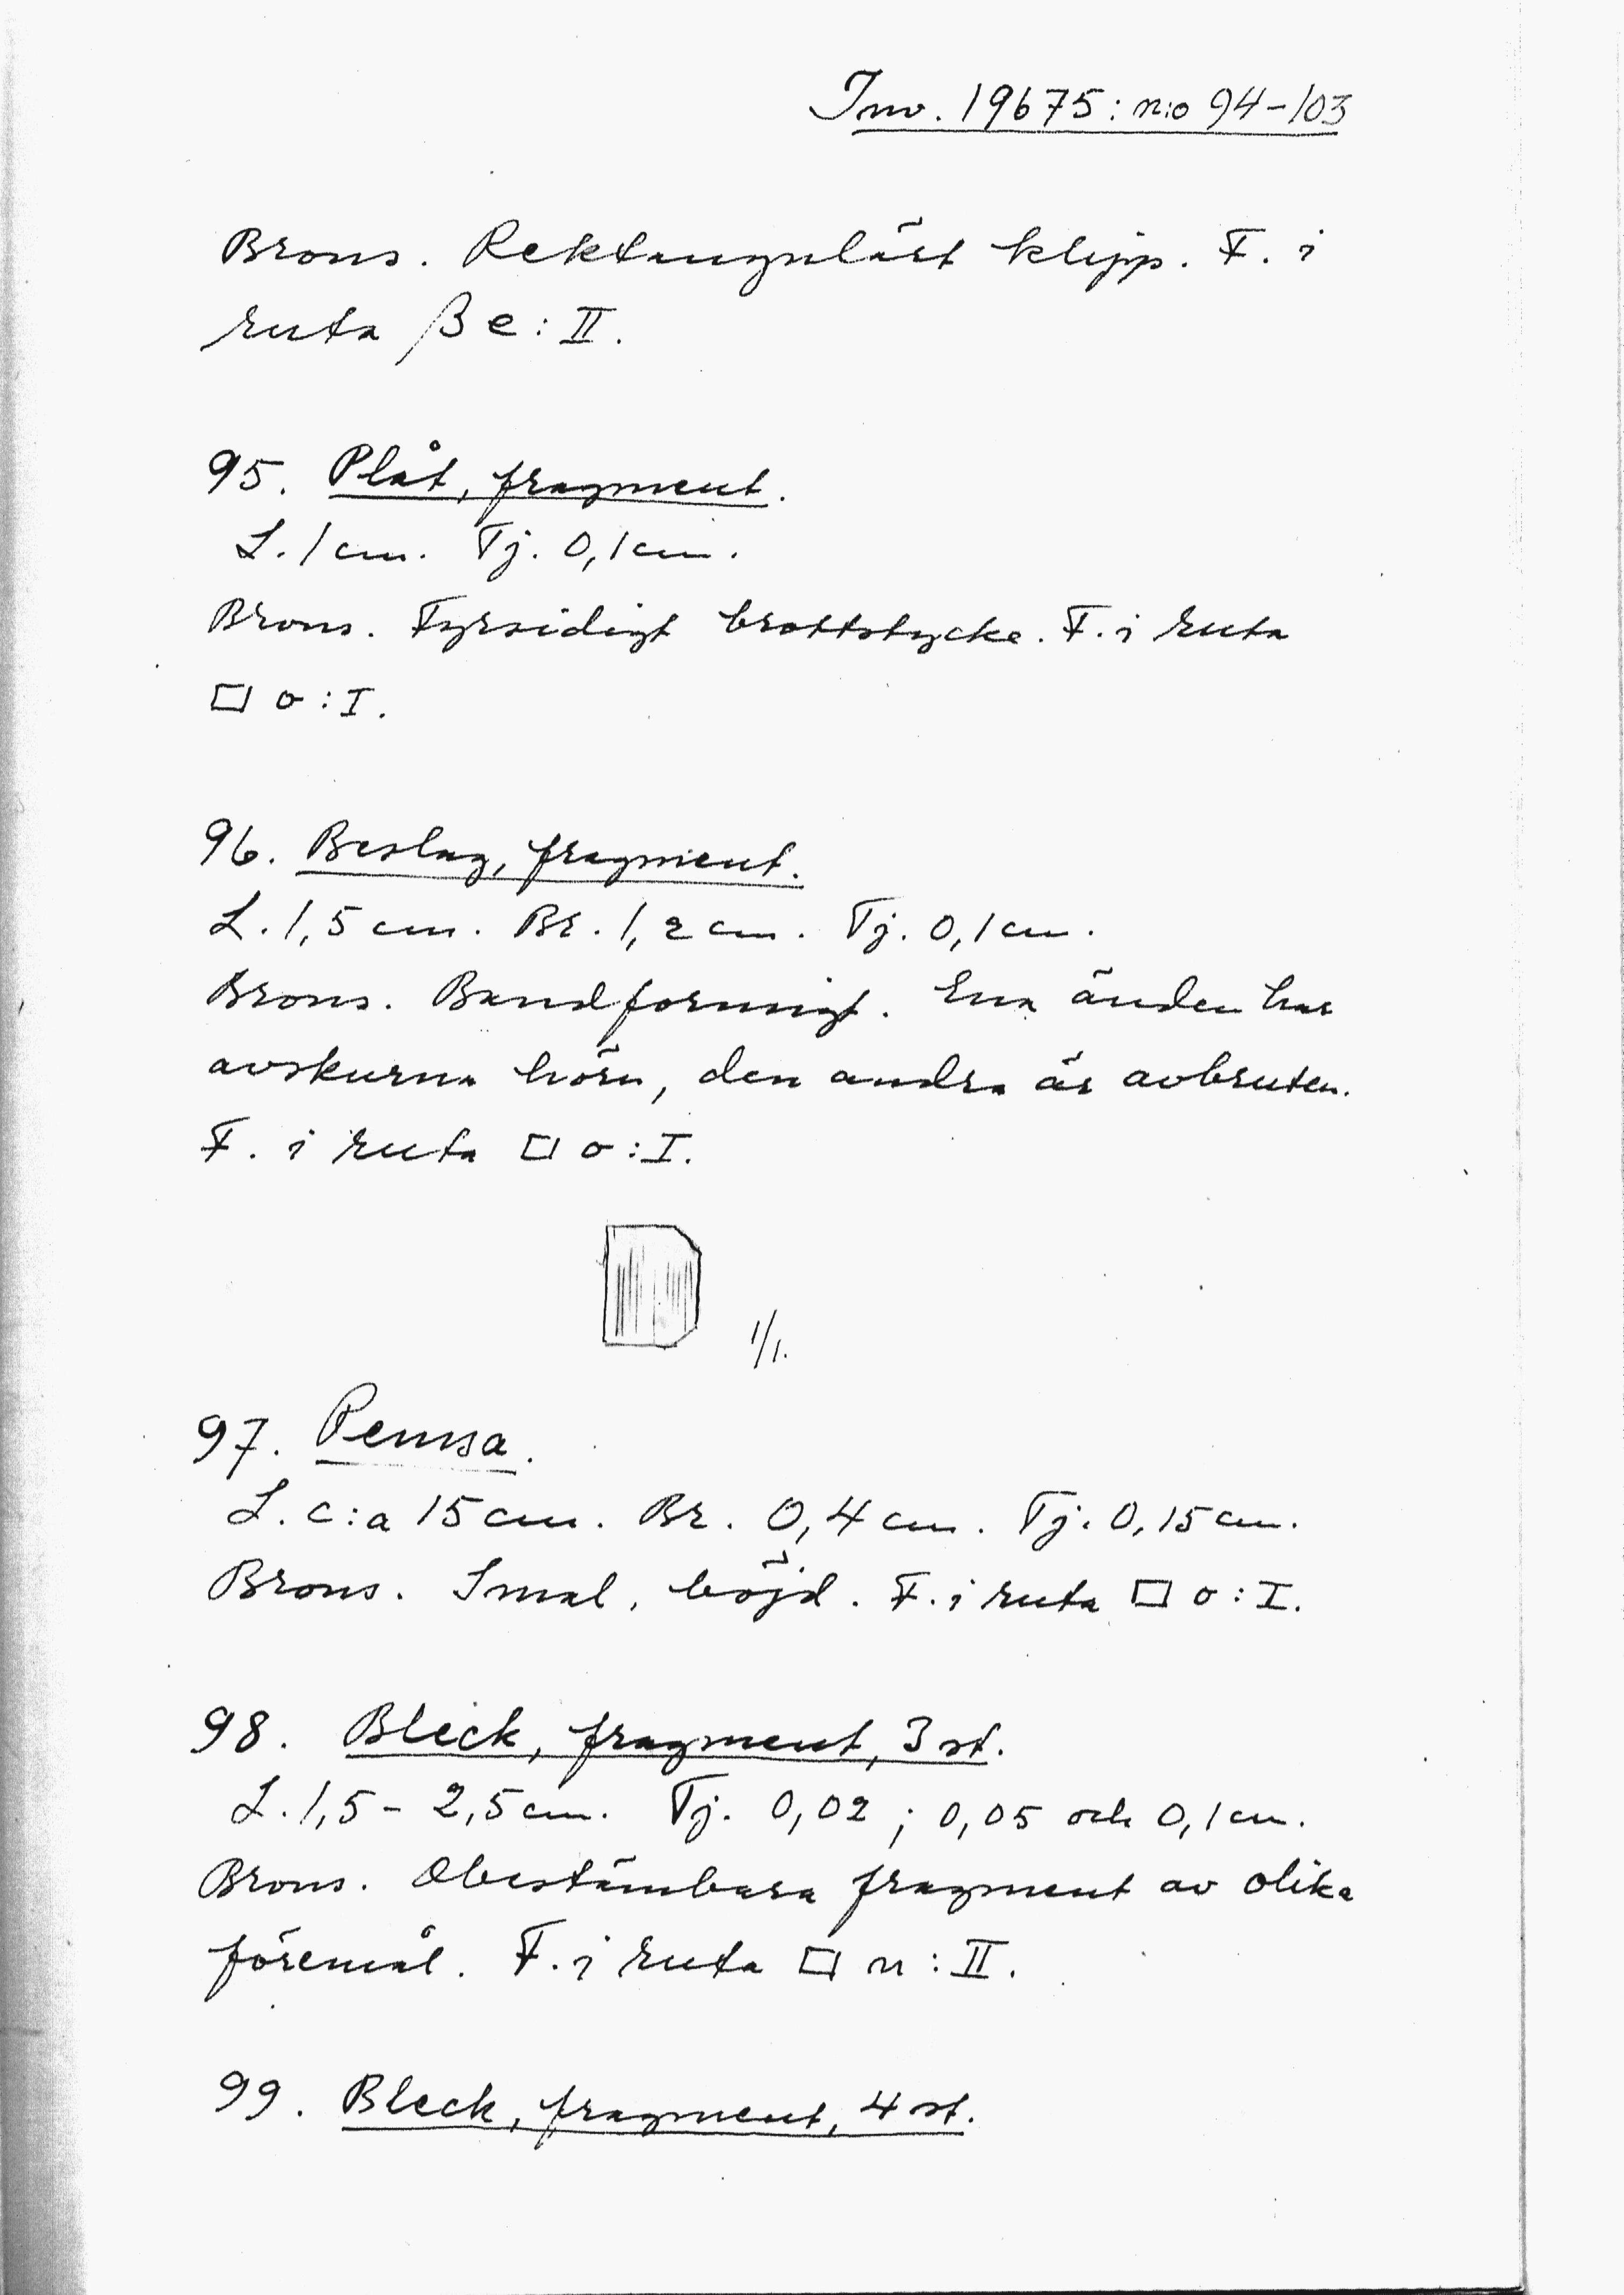 Inv. 19675: n:o 94-103
Brons. Rektangulärt klipp. F. i
ruta β e: II.
95. Plåt, fragment.
L. 1 cm. Tj. 0,1 cm.
Brons. Fyrsidigt brottstycke. F. i ruta
□ o: I.
96. Beslag, fragment.
L. 1,5 cm. Br. 1,2 cm. Tj. 0,1 cm.
Brons. Bandformigt. Ena änden har
avskurna hörn, den andra är avbruten.
F. i ruta □ o: I.
1/1.
97. Remsa.
L. c:a 15 cm. Br. 0,4 cm. Tj. 0,15 cm.
Brons. Smal, böjd. F. i ruta □ o: I.
98. Bleck, fragment, 3 st.
L. 1,5 - 2,5 cm. Tj. 0,02; 0,05 och 0,1 cm.
Brons. Obestämbara fragment av olika
föremål. F. i ruta □ n: II.
99. Bleck, fragment, 4 st.